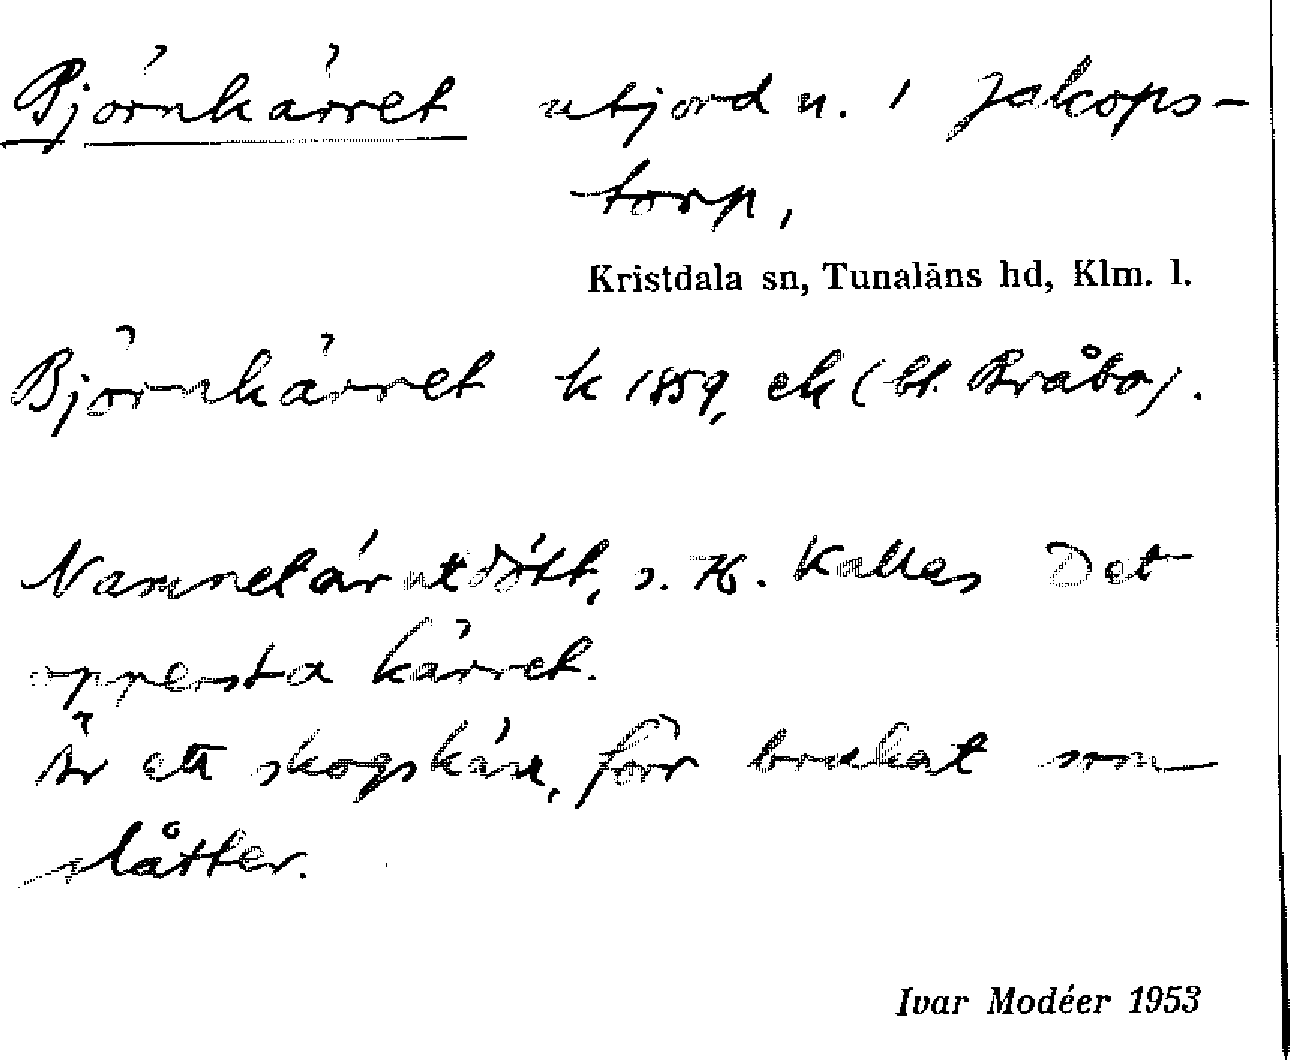 Björnkärret utjord n. i Jakops-
torp,
Kristdala sn, Tunaläns hd, Klm. l.
Björnkärret k 1859, ek (bl. Bråbo).
Namnet är utdött, s. H. Kallas Det
oppersta kärret.
Är ett skogskärr, förr brukat som
slåtter.
Ivar Modéer 1953